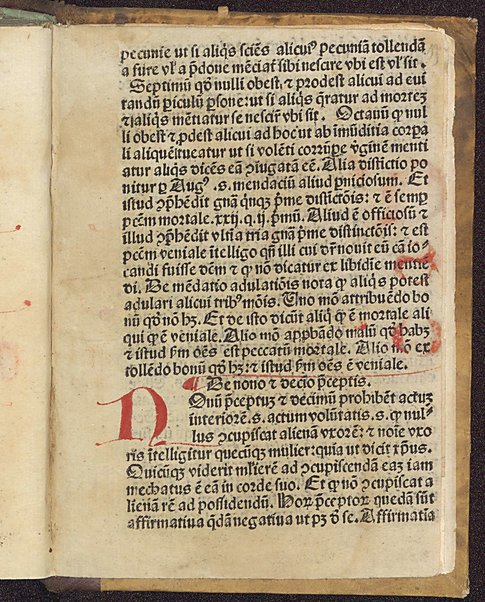 pecunie ut si aliq̃s sciẽs alicuiꝰ pecuniã tollendã
a fure vľ a p̃done mẽciat᷑ sibi nescire vbi est vľ sit.
Septimũ qď nulli obest, ⁊ prodest alicui ad eui
tandũ ꝑiculũ ꝑsone: ut si aliq̃s q̃ratur ad mortez
⁊ is aliq̃s mẽtiatur se nescir̃ vbi sit. Octauũ ꝙ nul
li obest ⁊ ꝓdest alicui ad hoc ut ab imũditia corꝑa
li aliquẽ tueatur ut si volẽti corrũpe vġinẽ menti
atur aliq̃s dicẽs eã ꝯiugatã eẽ. Alia distictio po
nitur ꝑ Augꝰ. .s. mendaciũ aliud ꝑniciosum. Et
istud ꝯp̃hẽdit gña q̃nqꝫ p̃me distictõis: ⁊ ẽ semꝑ
pcẽm mortale. xxij. q. ij. p̃mũ. Aliud ẽ officiosũ ⁊
illud ꝯp̃hẽdit vltĩa tria gña p̃me distinctõis: ⁊ est
pcẽm veniale ĩtelligo qñ illi cui dr̃ nouit eũ cã io-
candi fuisse dẽm ⁊ ꝙ nõ dicatur ex libidĩe mentiẽ
di. De mẽdatio adulatiõis nota ꝙ aliq̃s potest
adulari alicui tribꝰ mõis. Uno mõ attribuẽdo bo
nũ qď nõ hꝫ. Et de isto dicũt aliq̃ ꝙ ẽ mortale ali
qui ꝙ ẽ veniale. Alio mõ appbãdo malũ qď habꝫ
⁊ istud ẜm oẽs est peccatũ mortale. Alio mõ ex
tollẽdo bonũ qď hꝫ: ⁊ istud ẜm oẽs ẽ veniale.
¶ De nono ⁊ decĩo p̃ceptis.
Nonũ p̃ceptuꝫ ⁊ decimũ prohibẽt actuꝫ
interiorẽ .s. actum volũtatis .s. ꝙ nul-
lus ꝯcupiscat alienã vxorẽ: ⁊ noĩe vxo
ris ĩtelligitur quecũqꝫ mulier: quia ut dicit xp̃us.
Quicũqꝫ viderit ml̃ierẽ ad ꝯcupiscendã eaꝫ iam
mechatus ẽ eã in corde suo. Et ꝙ nõ ꝯcupiscat a
lienaꝫ rẽ ad possidendũ. Hoꝝ p̃ceptoꝝ quedã sũt
affirmatiua q̃dã negatiua ut pꝫ ď se. Affirmatia